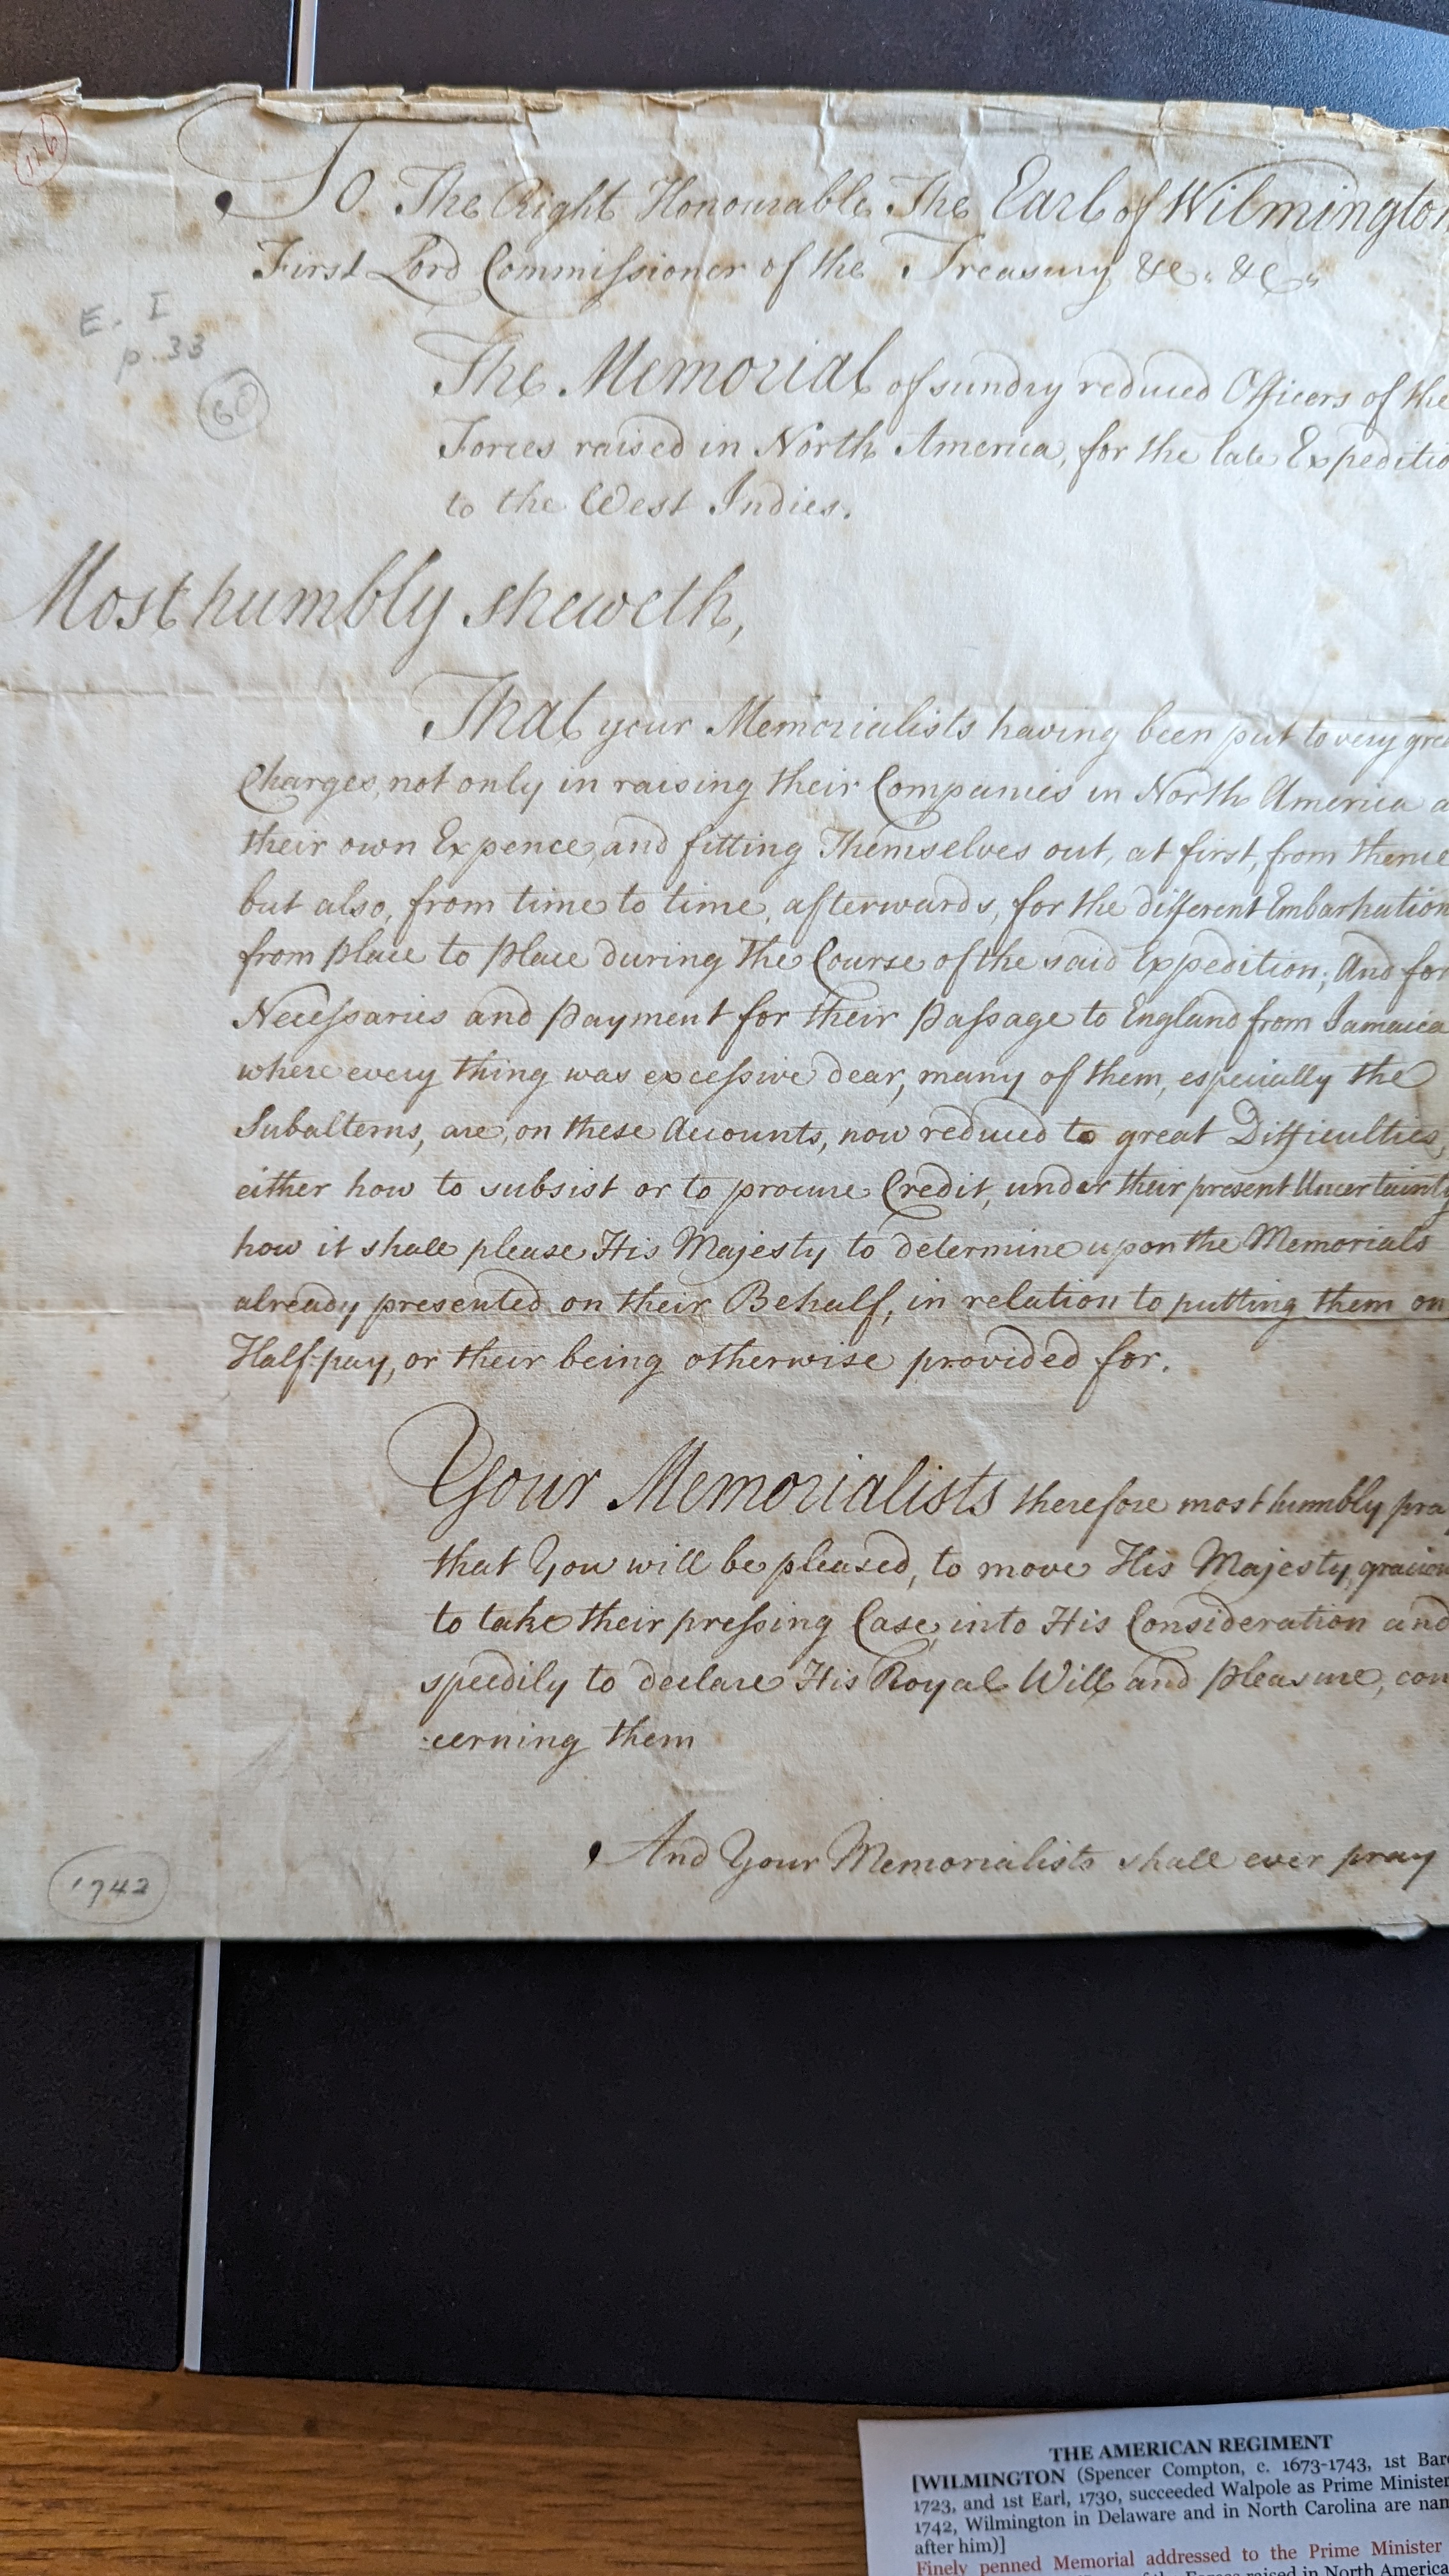 116
To The Right Honourable The Earl of Wilmington
First Lord Commissioner of the Treasury &c. &c.
E. I
p. 33
60
The Memorial of sundry reduced Officers of the
Forces raised in North America, for the late Expeditio
to the West Indies.
Most humbly sheweth,
That your Memorialists having been put to very gre
Charges, not only in raising their Companies in North America a
their own Expence, and fitting Themselves out, at first, from thence
but also, from time to time, afterwards, for the different Embarkation
from place to place during the Course of the said Expedition; And for
Necessaries and payment for their passage to England from Jamaica
where every thing was excessive dear, many of them, especially the
Subalterns, are, on these Accounts, now reduced to great Difficulties,
either how to subsist or to procure Credit, under their present Uncertainty
how it shall please His Majesty to determine upon the Memorials
already presented on their Behalf, in relation to putting them on
Half-pay, or their being otherwise provided for.
Your Memorialists therefore most humbly pray
that You will be pleased, to move His Majesty, graciou
to take their pressing Case, into His Consideration and
speedily to declare His Royal Will and pleasure, con
cerning them
And Your Memorialists shall ever pray
1742
THE AMERICAN REGIMENT
[WILMINGTON (Spencer Compton, c. 1673-1743, 1st Baro
1723, and 1st Earl, 1730, succeeded Walpole as Prime Minister
1742, Wilmington in Delaware and in North Carolina are nam
after him)]
Finely penned Memorial addressed to the Prime Minister
of the Forces raised in North America